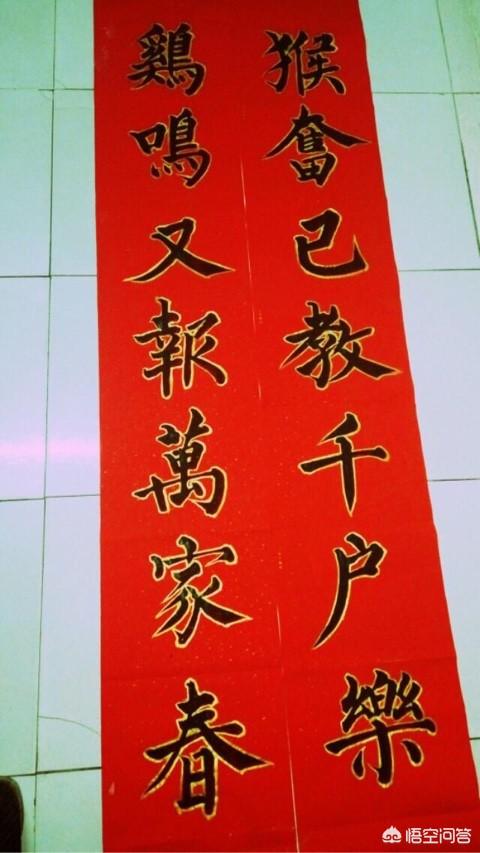 猴奮已教千户樂
鷄鳴又報萬家春
悟空问答